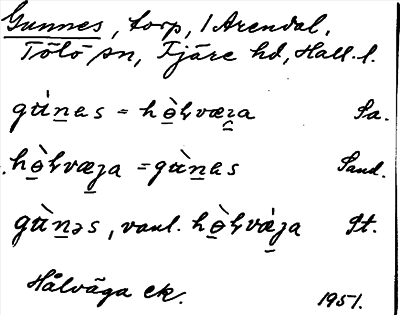 Gunnes, torp, / Arendal,
Tölö sn, Fjäre hd, Hall. l.
gɯ̀n̲as = hò̲ɫvæʓa Sa.
hò̲ɫvæʒ̲a = gɯ̀n̲as Sand.
gɯ̀n̲əs, vanl. hò̲ɫvæ̀ʒ̲a St.
Hålväga ek. 1951.